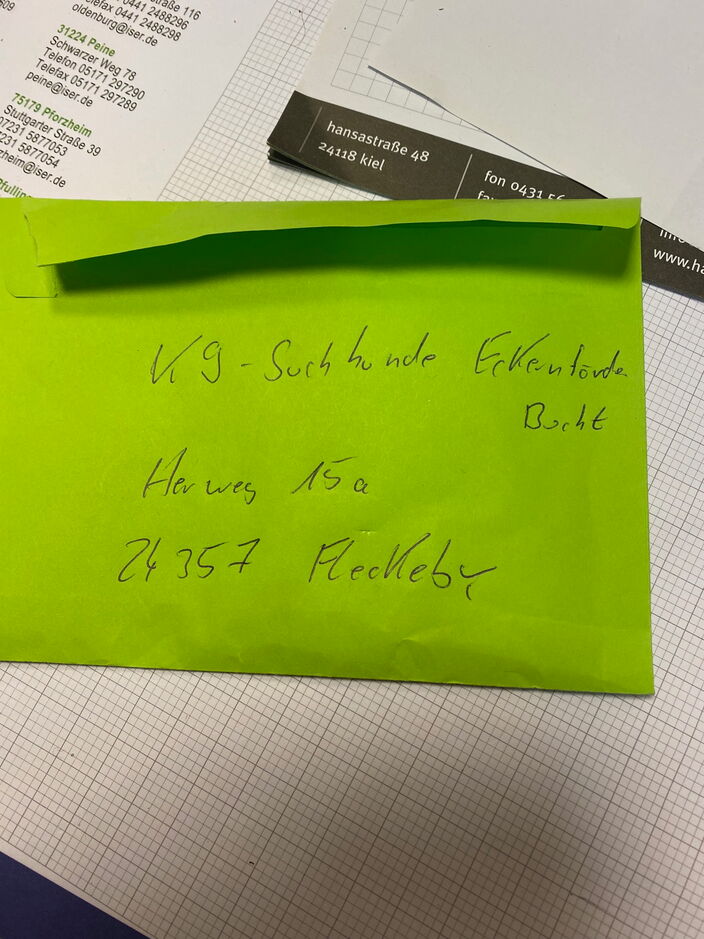 straße 116
0441 2488296
efax 0441 2488298
oldenburg@iser.de
31224 Peine
Schwarzer Weg 78
Telefon 05171 297290
Telefax 05171 297289
peine@iser.de
75179 Pforzheim
Stuttgarter Straße 39
07231 5877053
7231 5877054
zheim@iser.de
Pfulling
hansastraße 48
24118 kiel
fon 0431 56
www.ha
K9-Suchhunde Eckernförder
Bucht
Herweg 15a
24357 Fleckeby